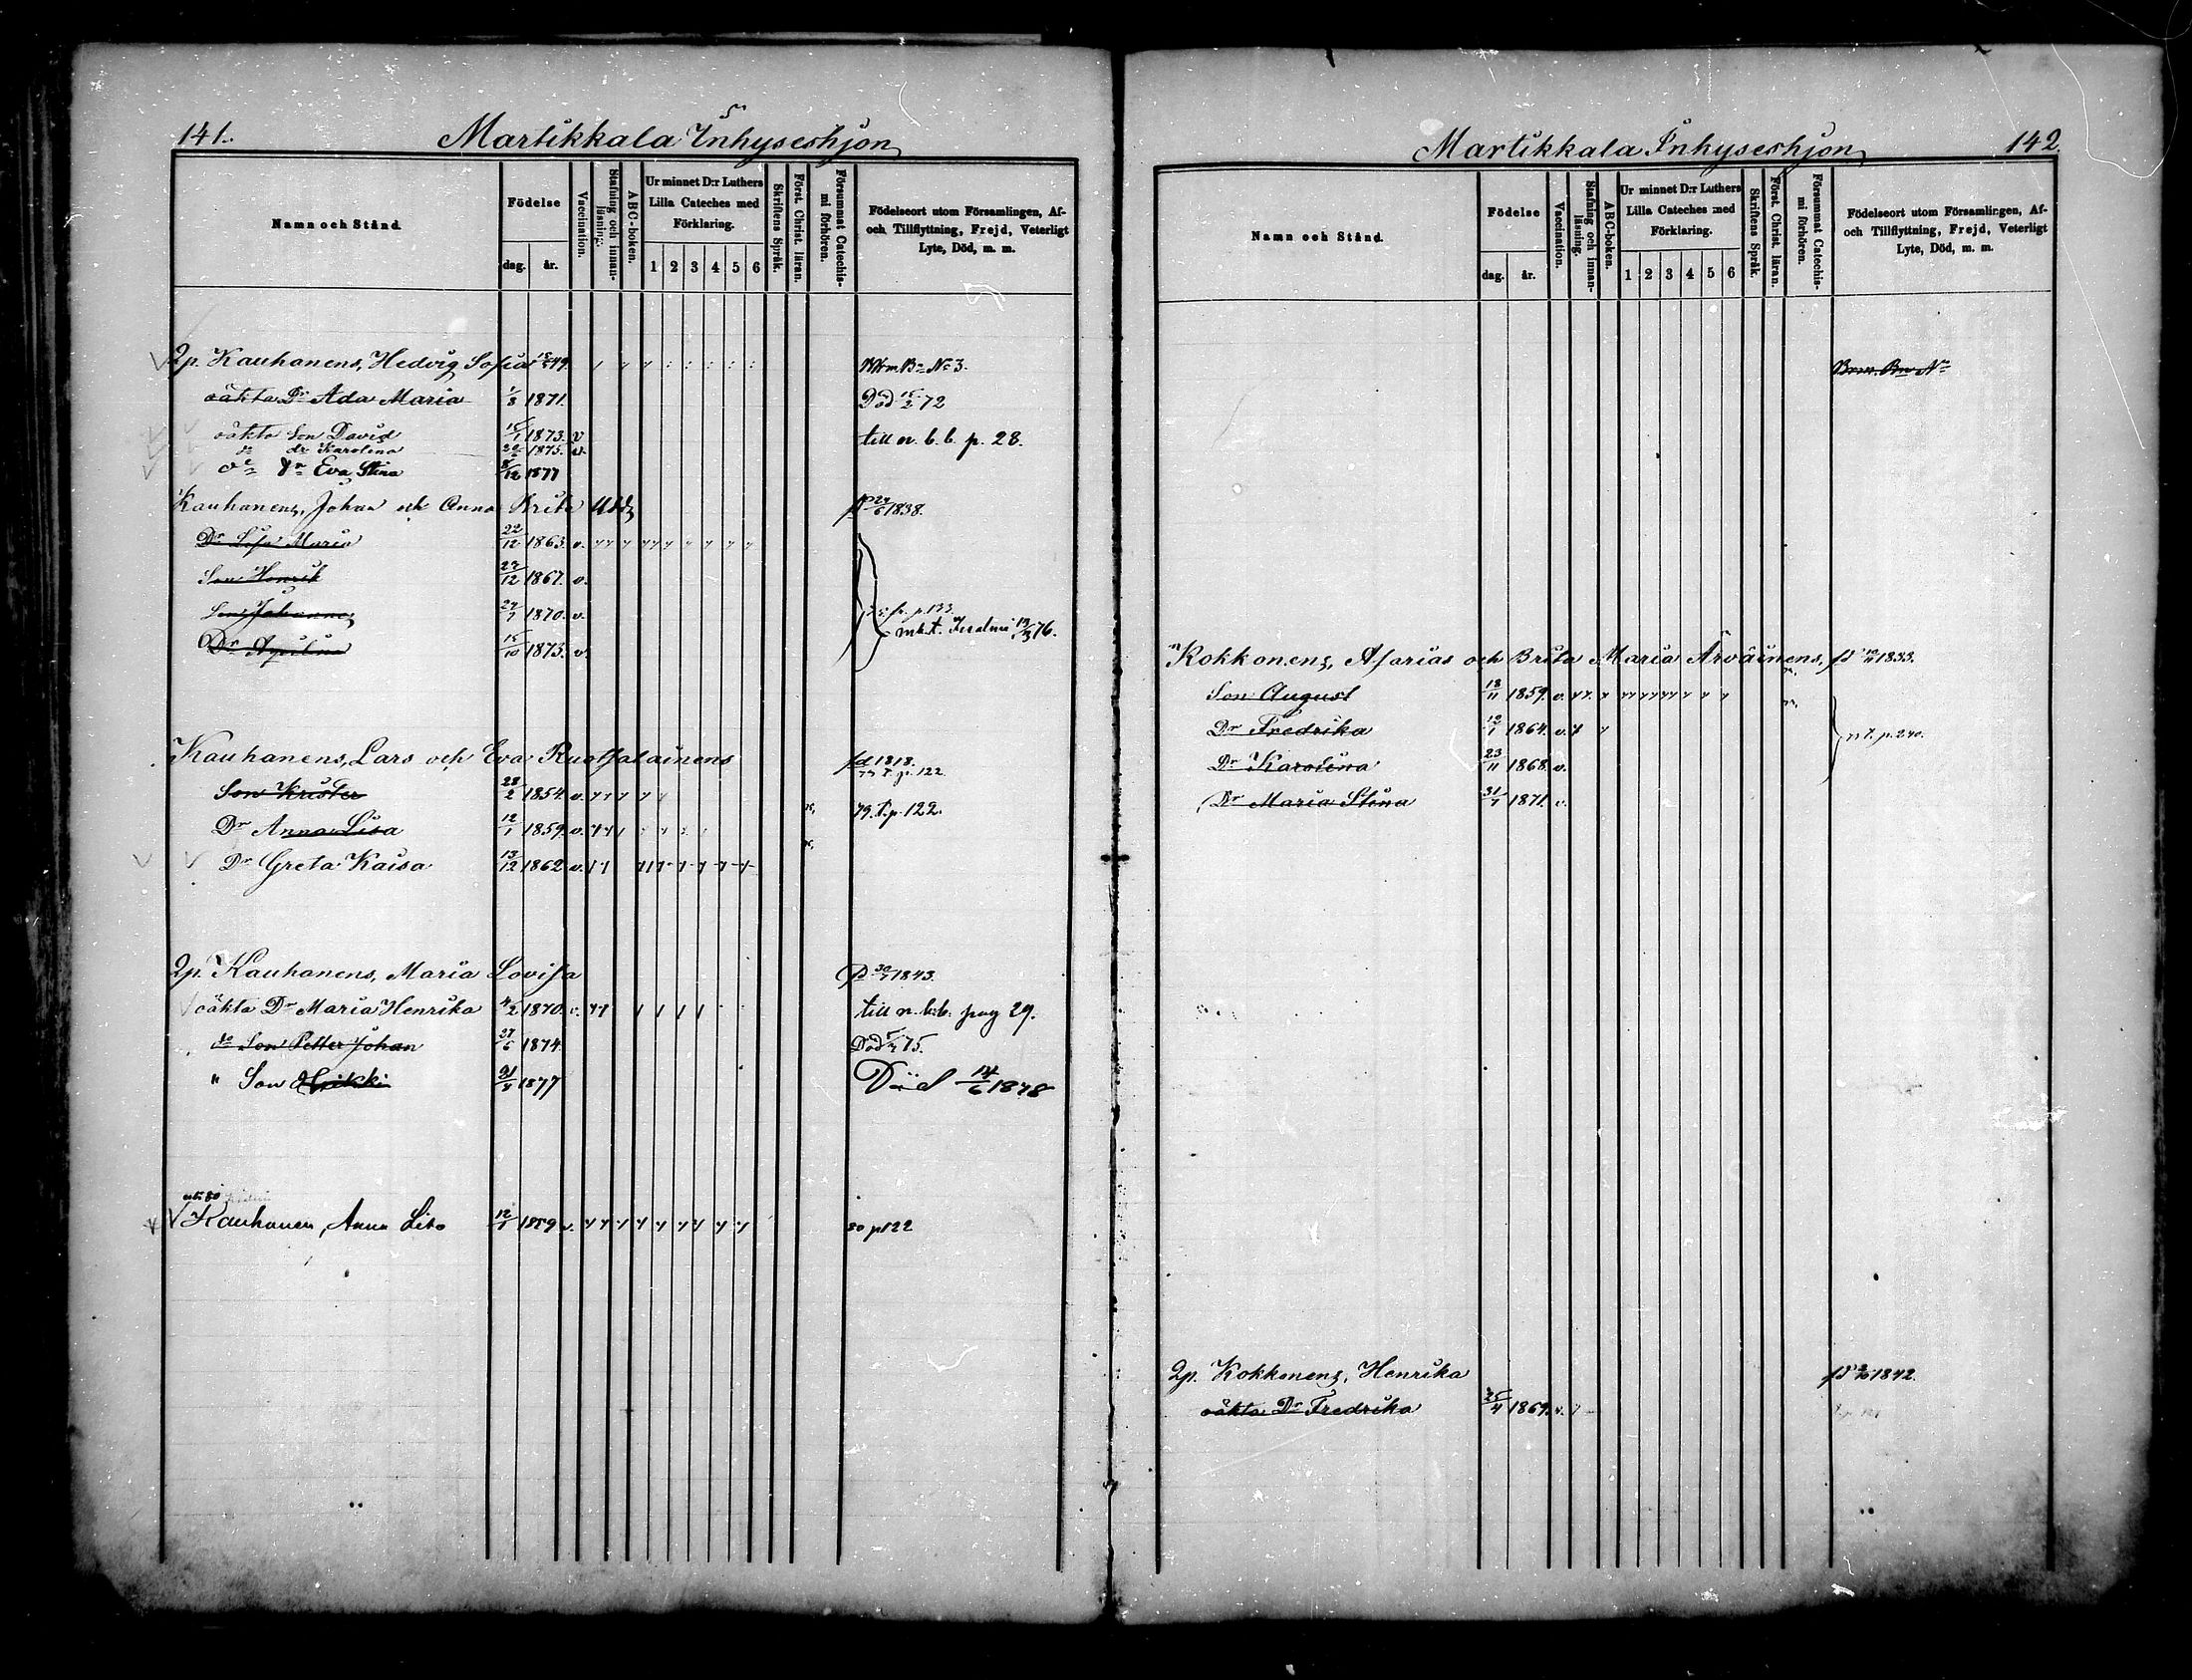 141.
Martikkala Inhyseshjon
Namn och Stånd
Födelse
dag. år.
Vaccination.
Stafning och innan-läsning.
ABC-boken.
Ur minnet D:r Luthers
Lilla Cateches med
Förklaring.
1 2 3 4 5 6
Skriftens Språk.
Först. Christ. läran.
Försummat Catechis-mi förhören.
Födelseort utom Församlingen, Af-
och Tillflyttning, Frejd, Veterligt
Lyte, Död, m. m.
Qp. Kauhanens, Hedvig Sofia 49. Bn No 3.
oäkta Dr Ada Maria 1/8 1871. Död 15/2 72
oäkta Son David 15/1 1873. v till n. b. b. p. 28.
do dr Karolina 1875. v.
do dr Eva Stina 8/12 1877
Kauhanens, Johan och Anna Brita Udd 1838.
Dr Lisa Maria 22/12 1863. v.
Son Henrik 27/12 1867. v.
Son Johannes 27/7 1870. v. p. 133.
mk. t. Iisalmi 13/3 76.
Dr Aqvilina 15/10 1873. v.
Kauhanens, Lars och Eva Ruotsalainens fd 1818.
77 t. p. 122
Son Krister 28/2 1854. v. 79. t. p. 122.
Dr Anna Lisa 12/1 1859. v.
Dr Greta Kaisa 13/12 1862 v.
Qp. Kauhanens, Maria Lovisa 30/7 1843.
oäkta Dr Maria Henrika 4/2 1870. v. till n. b. b. pag 29.
do Son Petter Johan 27/6 1874. Död 75.
" Son Heikki 21/4 1877 Död 14/6 1878
Kauhanen, Anna Lisa 12/1 1859 v. 80 p 122
Martikkala Inhyseshjon
142.
Namn och Stånd.
Födelse
dag. år.
Vaccination.
Stafning och innan-läsning.
ABC-boken.
Ur minnet D:r Luthers
Lilla Cateches med
Förklaring.
1 2 3 4 5 6
Skriftens Språk.
Först. Christ. läran.
Försummat Catechis-mi förhören.
Födelseort utom Församlingen, Af-
och Tillflyttning, Frejd, Veterligt
Lyte, Död, m. m.
Bn No
Kokkonens, Asarias och Brita Maria Arväinens, 1833.
Son August 18/11 1859. v.
Dr Fredrika 12/1 1864. v. 77 t. p. 240.
Dr Karolina 23/11 1868. v.
Dr Maria Stina 31/7 1871. v.
Qp. Kokkonens, Henrika 1842.
oäkta Dr Fredrika 25/4 1869. v.